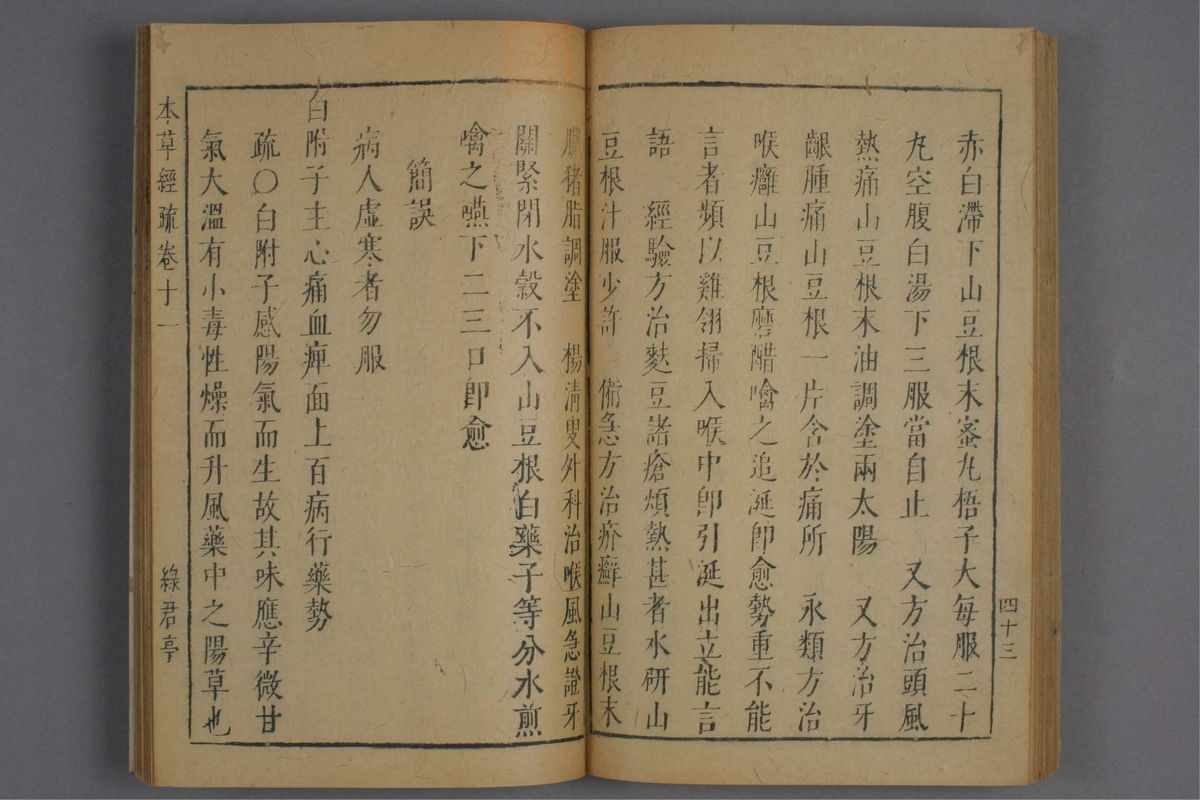 四十三
赤白滯下山豆根末蜜丸梧子大每服二十
丸空腹白湯下三服當自止　又方治頭風
熱痛山豆根末油調塗兩太陽　又方治牙
齦腫痛山豆根一片含於痛所　永類方治
喉癰山豆根磨醋噙之追涎卽愈勢重不能
言者頻以雞翎掃入喉中卽引涎出立能言
語　經驗方治麩豆諸瘡煩熱甚者水研山
豆根汁服少許　備急方治疥癬山豆根末
臘猪脂調塗　楊淸叟外科治喉風急證牙
關緊閉水穀不入山豆根白藥子等分水煎
噙之嚥下二三口卽愈
簡誤
病人虛寒者勿服
白附子主心痛血痺面上百病行藥勢
疏○白附子感陽氣而生故其味應辛微甘
氣大溫有小毒性燥而升風藥中之陽草也
本草經疏卷十一
綠君亭